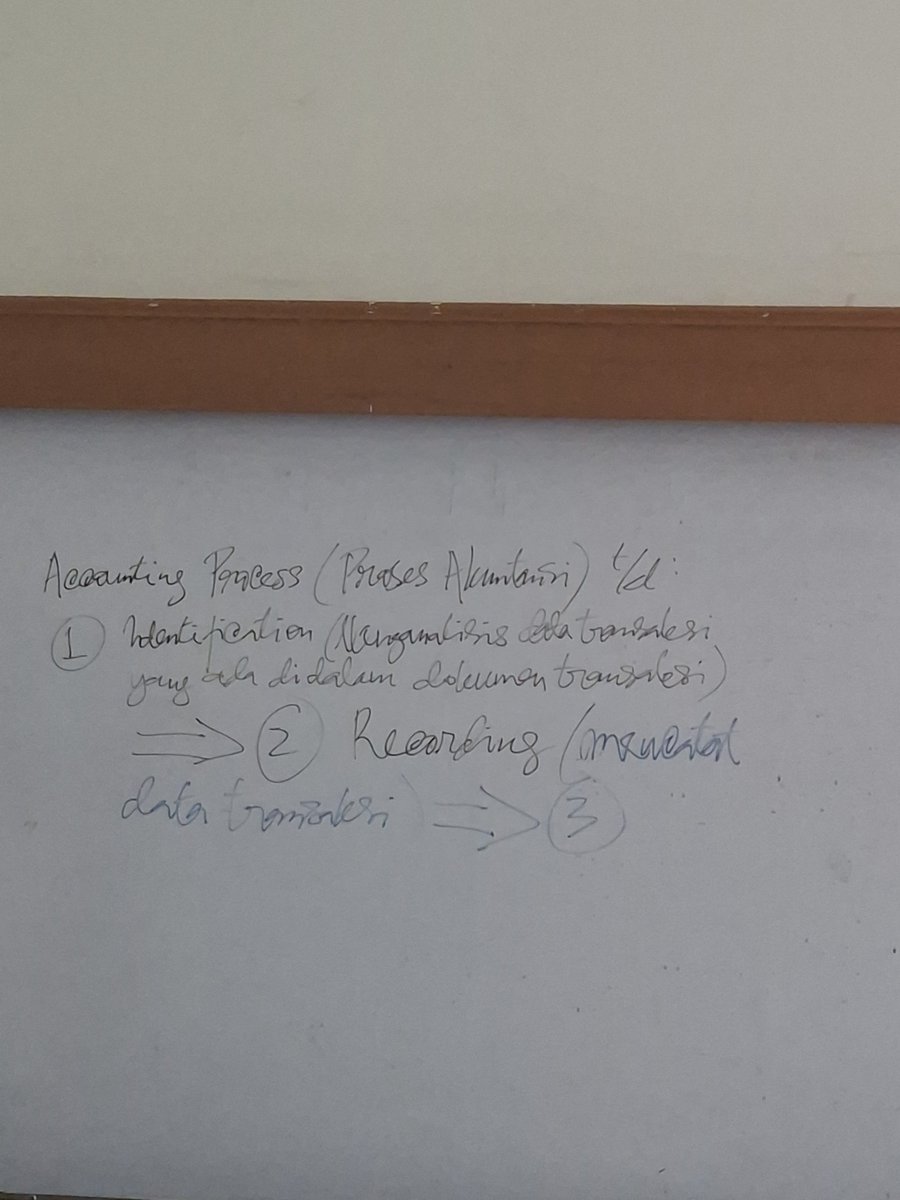 Accounting Process (Proses Akuntansi) t/d:
① Identification (Menganalisis data transaksi
yang ada didalam dokumen transaksi)
⇒ ② Recording (mencatat
data transaksi) ⇒ ③